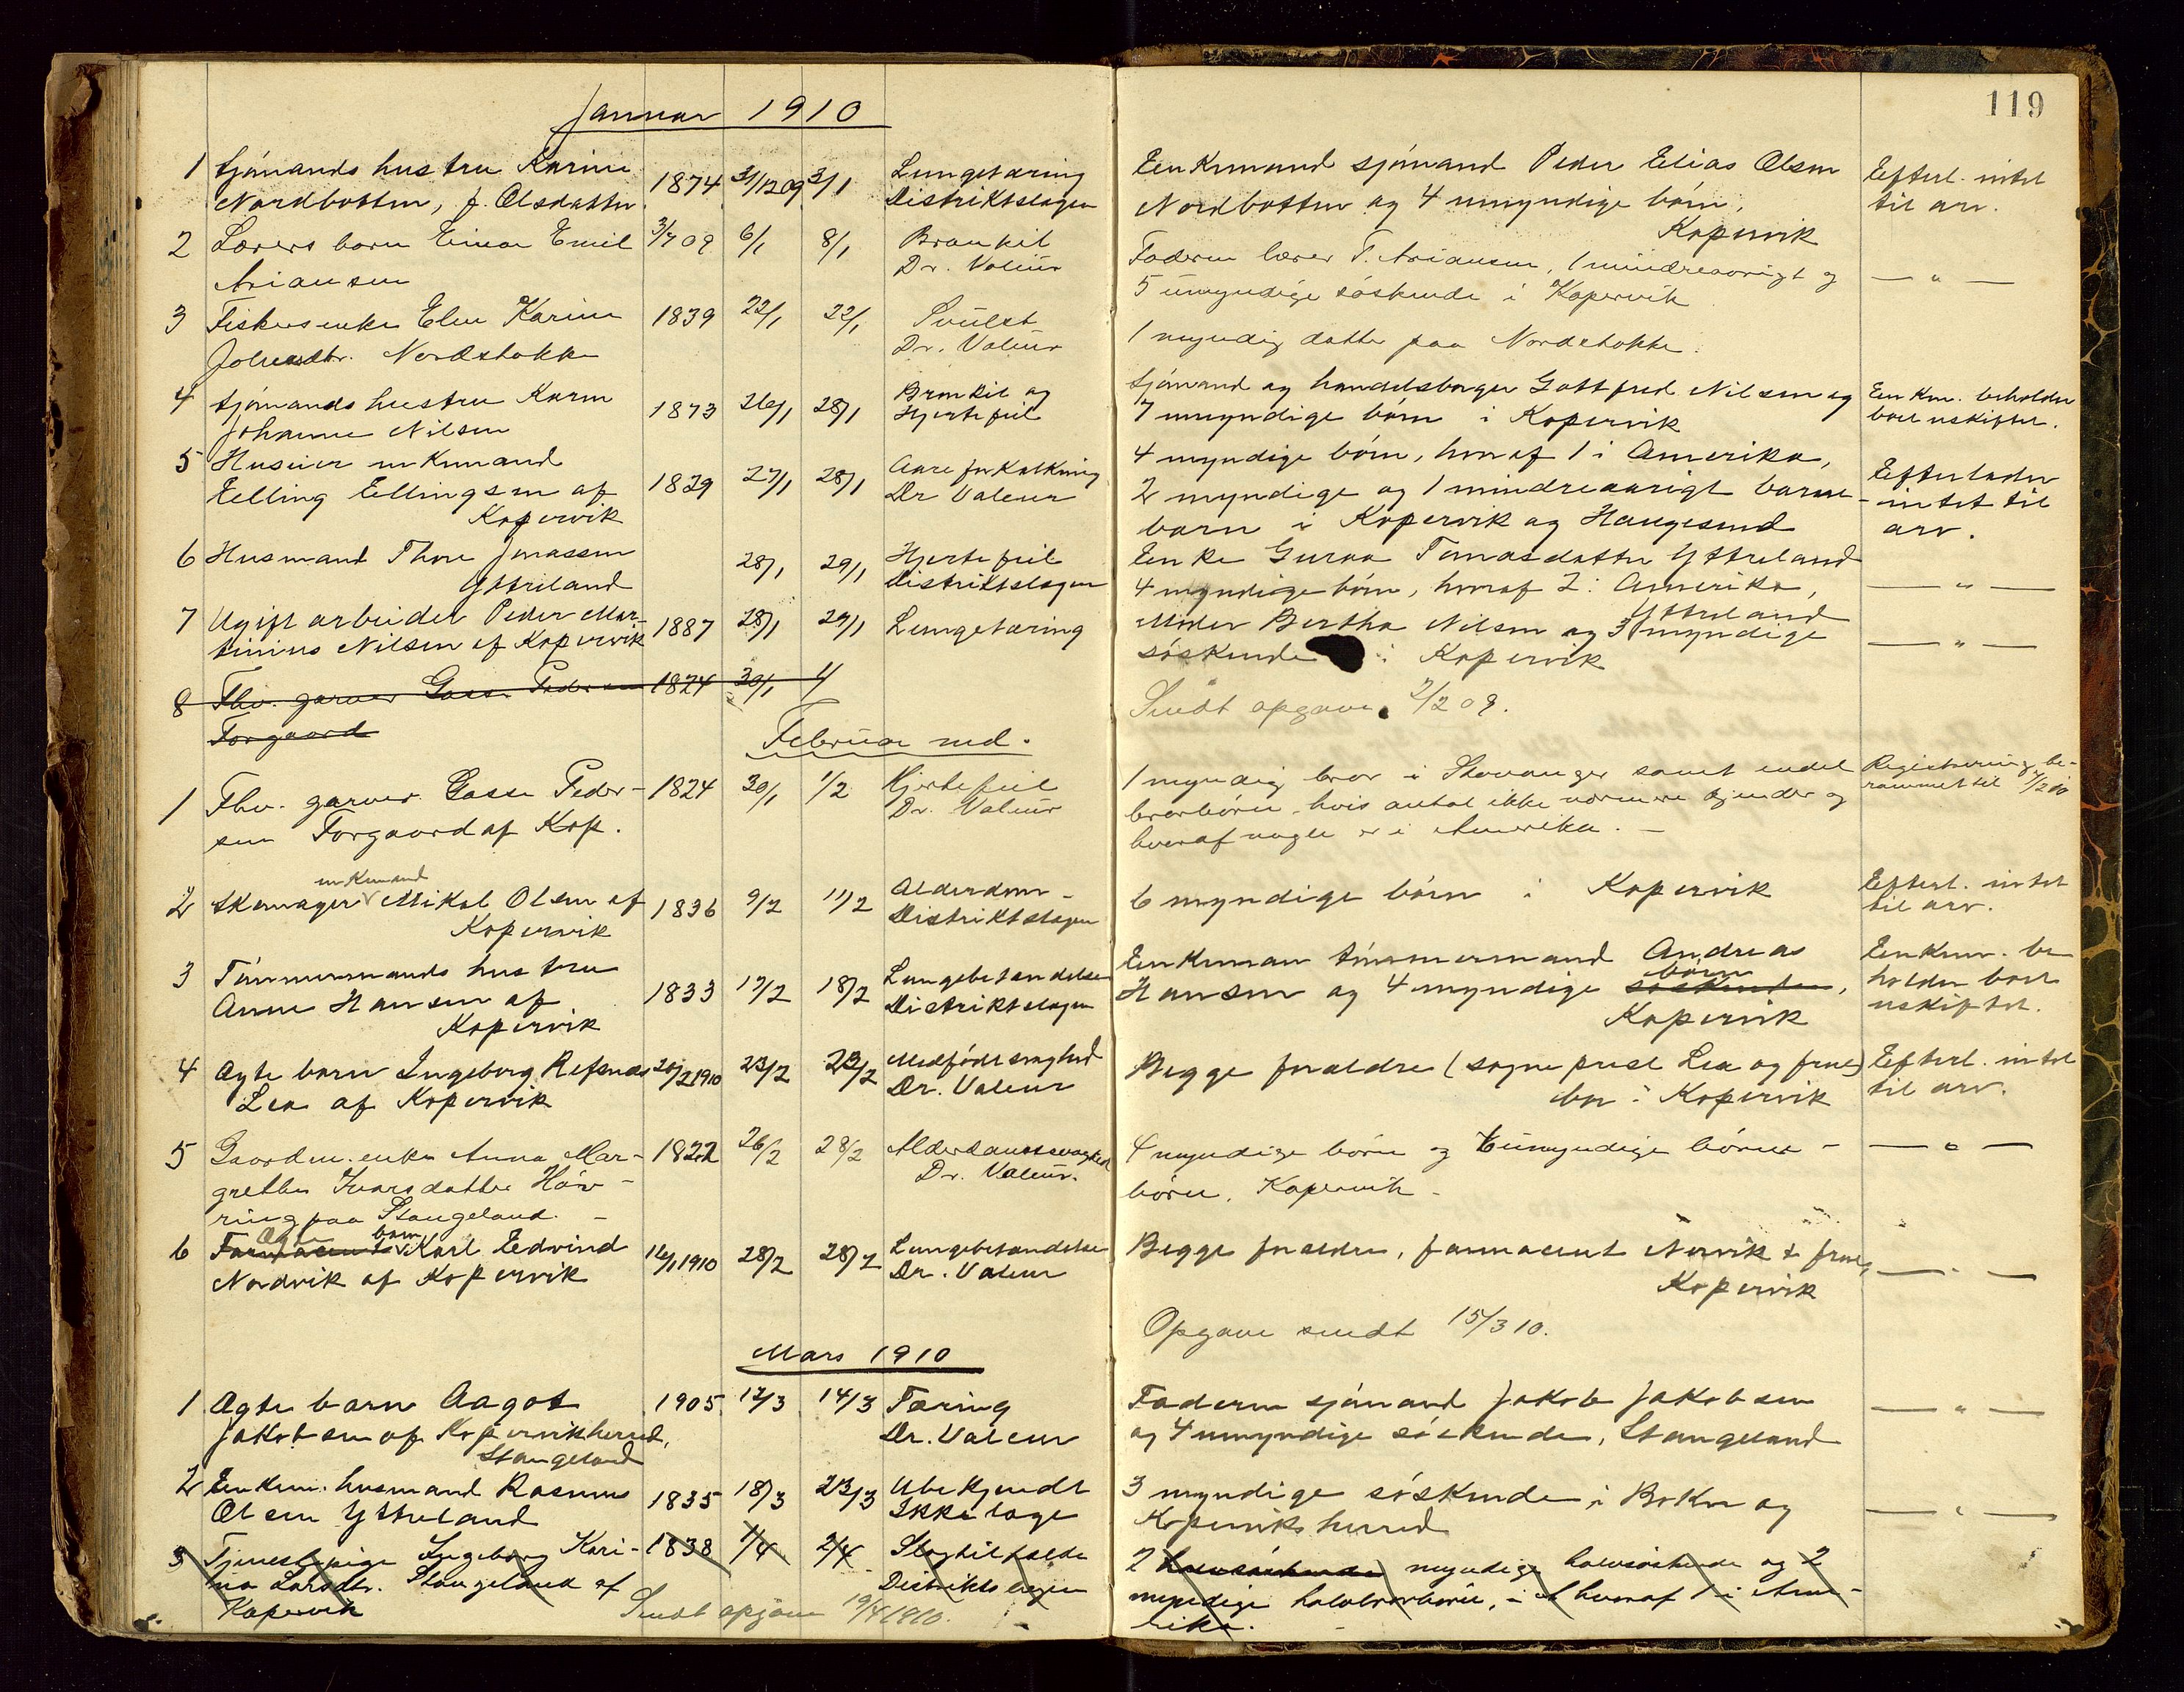 119
Januar 1910
1 Sjömands hustru Karine 1874 31/12 09 3/1 Lungetæring Enkemand sjömand Peder Elias Olsen Efterl. intet
Nordbotten, f. Olsdatter Distriktslægen Nordbotten og 4 umyndige börn, til arv.
Kopervik
2 Lærers barn Einar Emil 3/7 09 6/1 8/1 Bronkit Faderen lærer T. Ariansen, 1 mindreaarigt og — " —
Ariansen Dr. Valeur 5 umyndige söskende i Kopervik
3 Fiskerenke Elen Karine 1839 22/1 22/1 Svulst 1 myndig datter paa Nordstokke.
Nordstokke Dr. Valeur
4 Sjömands hustru Karen 1873 26/1 28/1 Bronkit og Sjömand og handelsborger Gottfred Nilsen og Enkm. beholder
Johanne Nilsen Hjertefeil 7 umyndige börn i Kopervik boet uskiftet.
5 Huseier enkemand 1829 27/1 28/1 Aareforkalkning 4 myndige börn, hvoraf 1 i Amerika, Efterlader
Elling Ellingsen af Dr Valeur 2 myndige og 1 mindreaarigt barne- intet til
Kopervik barn i Kopervik og Haugesund arv.
6 Husmand Thore Jonassen 28/1 29/1 Hjertefeil Enke Guroa Tomasdatter Ytreland — " —
Ytreland Distriktslægen 4 myndige börn, hvoraf 2 i Amerika,
Ytreland
7 Ugift arbeider Peder Mar- 1887 28/1 29/1 Lungetæring Moder Bertha Nilsen og 3 myndige — " —
tinius Nilsen af Kopervik söskende i Kopervik
8 Fhv. garver Gasse Pedersen 1824 30/1 Sendt opgave 2/2 09.
Torgaard
Februar md.
1 Fhv. garver Gasse Peder- 1824 30/1 1/2 Hjertefeil 1 myndig bror i Stavanger samt endel Registrering be-
sen Torgaard af Kop. Dr. Valeur brorbörn, hvis antal ikke nærmere kjender og rammet til
hvoraf nogle er i Amerika. —
2 Skomager enkemand Mikal Olsen af 1836 9/2 11/2 Alderdom 6 myndige börn i Kopervik Efterl. intet
Kopervik Distriktslægen til arv.
3 Tömmermands hustru 1833 17/2 18/2 Lungebetændelse Enkeman tömmermand Andreas Enkem. be
Anne Hansen af Distriktslægen Hansen og 4 myndige söskende börn, holder boet
Kopervik Kopervik uskiftet.
4 Ægte barn Ingeborg Refsnes 20/2 1910 23/2 23/2 Medfödt svaghed Begge forældre (sogneprest Lea og frue) Efterl. intet
Lea af Kopervik Dr. Valeur bor i Kopervik til arv.
5 Gaardm. enke Anna Mar- 1822 26/2 28/2 Alderdomssvaghed 4 myndige börn og umyndige börne- — " —
grethe Ivarsdatter Dr. Valeur. börn, Kopervik
ring paa Stangeland. —
6 Farmaceut Ægte barn Karl Edvind 16/1 1910 28/2 28/2 Lungebetændelse Begge forældre, farmaceut Norvik & frue, — " —
Nordvik af Kopervik Dr. Valeur Kopervik
Opgave sendt 15/3 10.
Mars 1910
1 Ægte barn Aagot 1905 12/3 14/3 Tæring Faderen sjömand Jakob Jakobsen — " —
Jakobsen af Kopervik herred, Dr. Valeur og 4 umyndige söskende, Stangeland
Stangeland
2 Enkem. husmand Rasmus 1835 18/3 23/3 Ubekjendt 3 myndige söskende i Bokn og — " —
Olsen Ytreland Ikke læge Koperviks herred
3 Tjenestepige Ingeborg Kari- 1838 1/4 2/4 Slagtilfælde 2 halvsöskende myndige halvsöskende og 2
na Larsdtr. Stangeland af Distriktslægen myndige halvbrorbörn, hvoraf 1 i Ame-
Kopervik Sendt opgave 19/4 1910. rika.